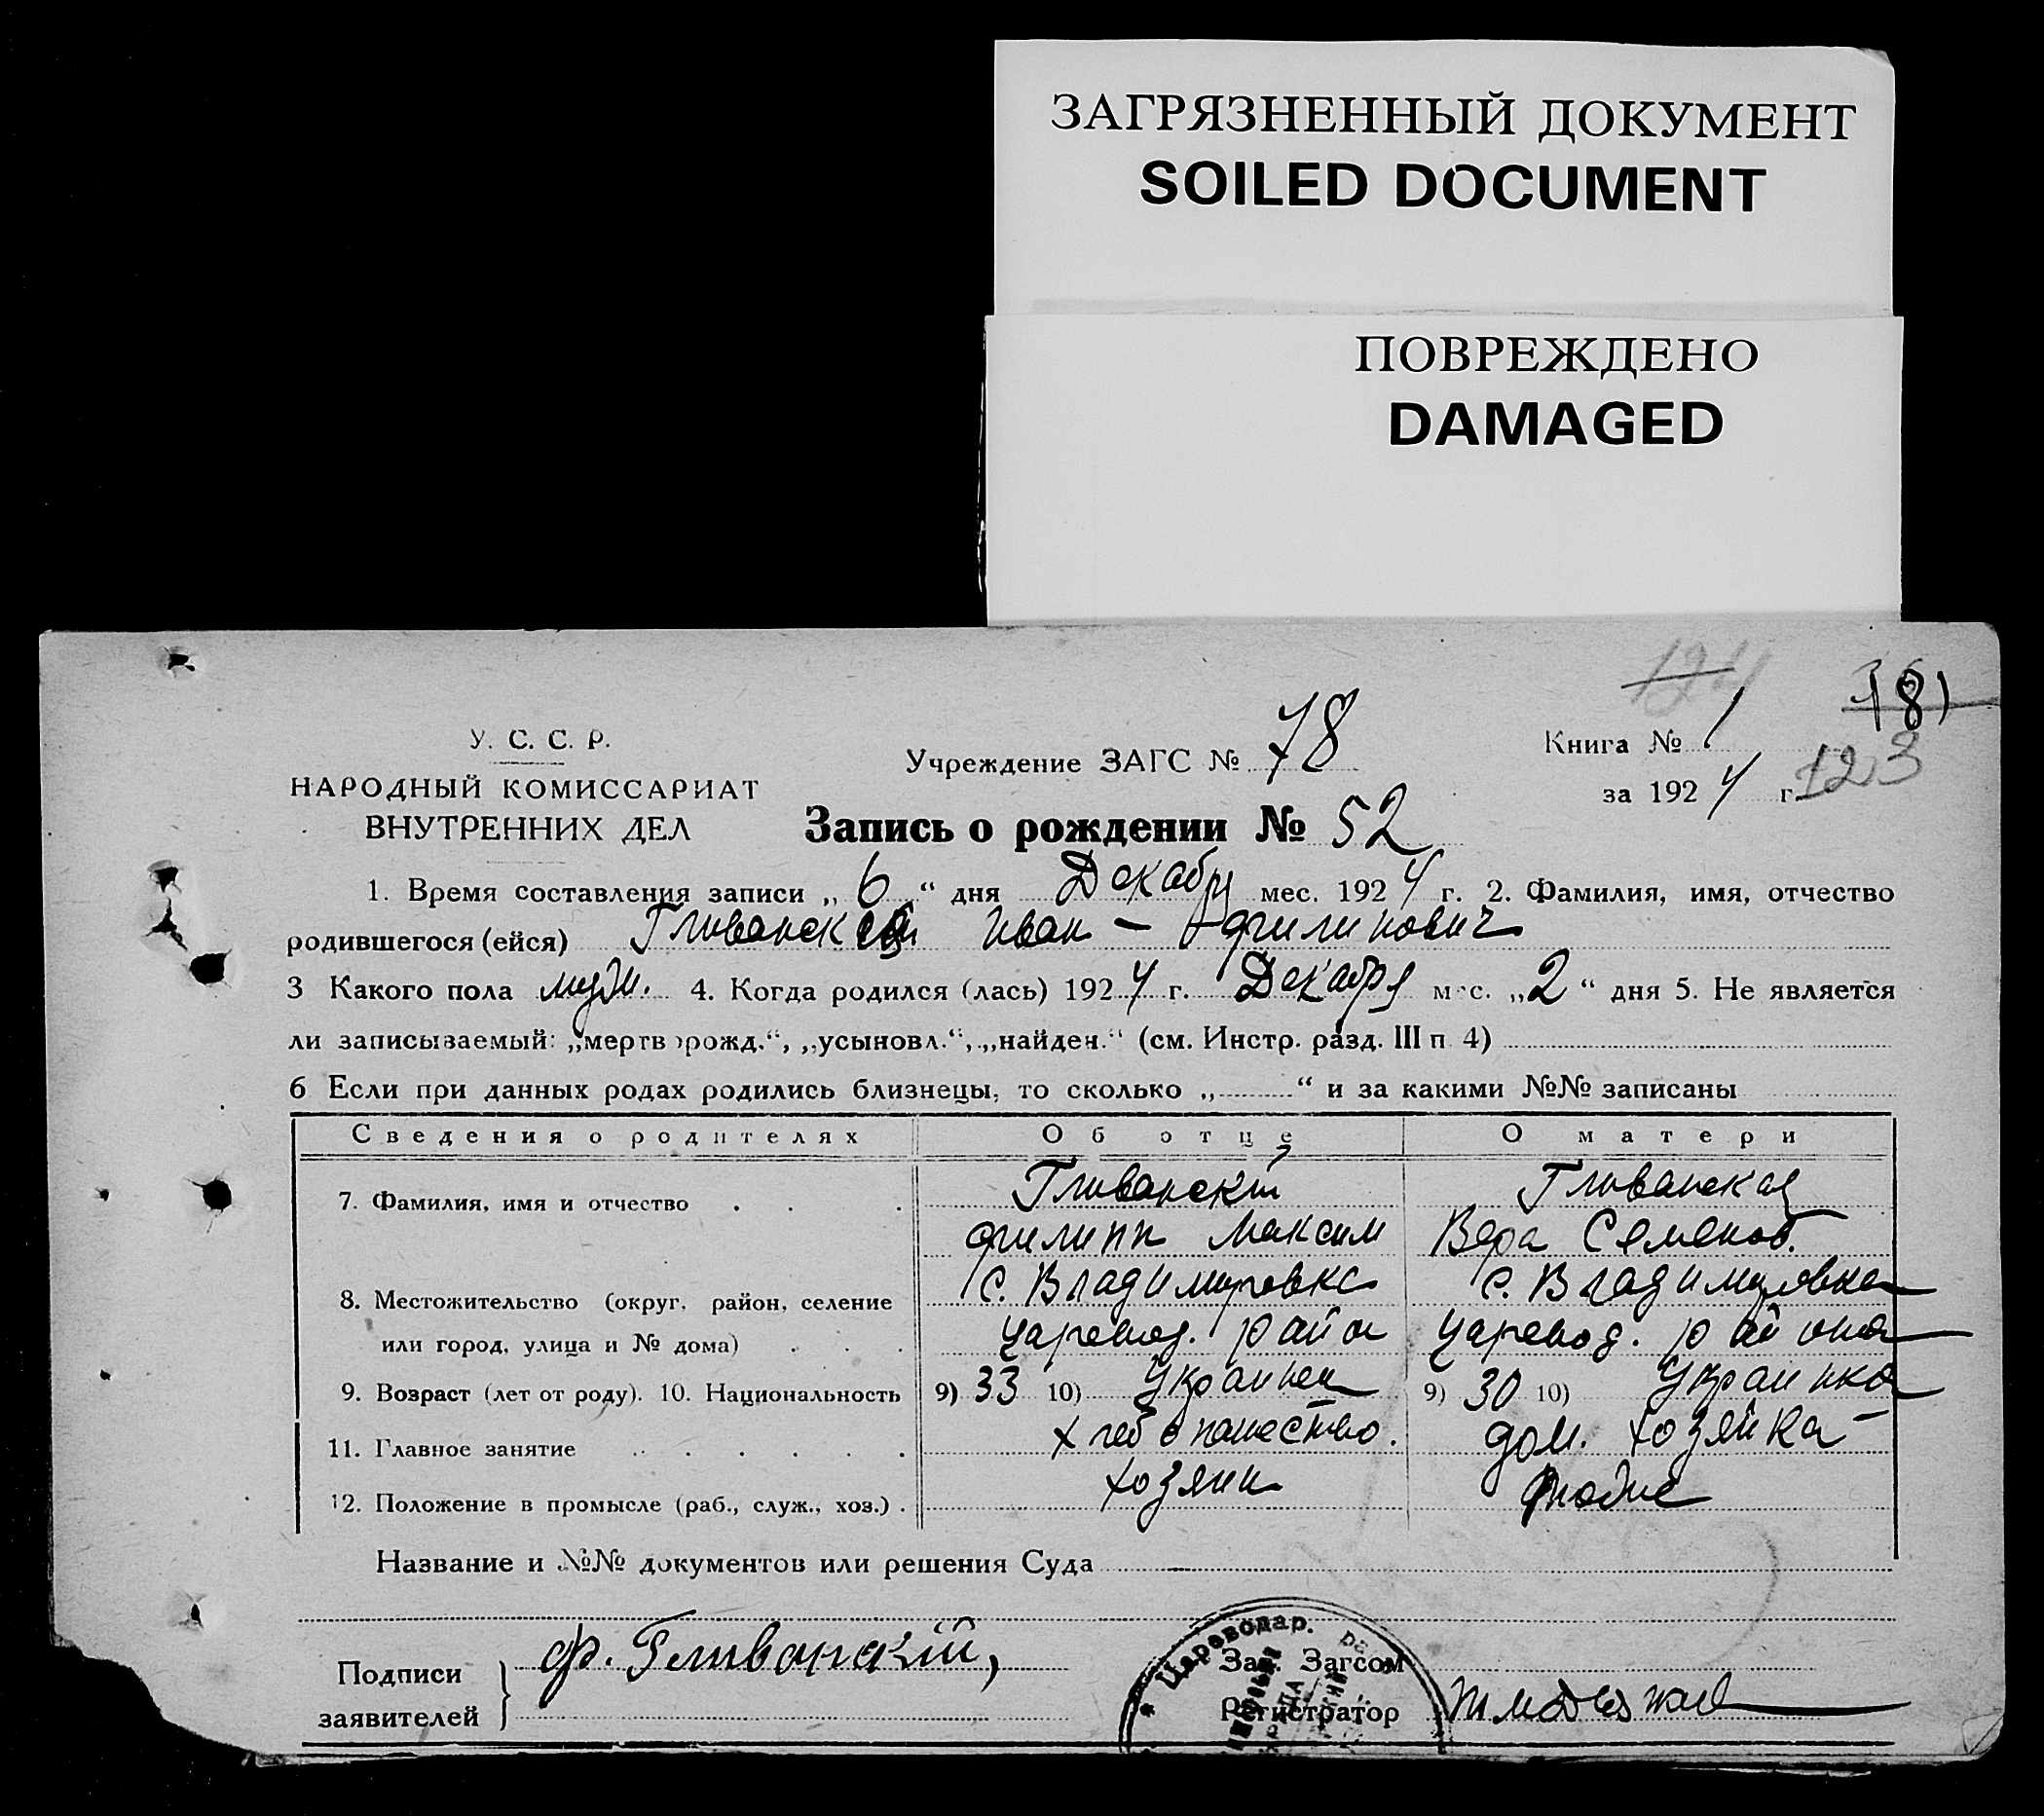 ЗАГРЯЗНЕННЫЙ ДОКУМЕНТ
SOILED DOCUMENT
ПОВРЕЖДЕНО
DAMAGED
У. С. С. Р.
НАРОДНЫЙ КОМИССАРИАТ
ВНУТРЕННИХ ДЕЛ
Учреждение ЗАГС № 78
124
181
Книга № 1
за 1924 г.
123
Запись о рождении № 52
1. Время составления записи „6“ дня Декабря мес. 1924 г. 2. Фамилия, имя, отчество
родившегося (ейся) Иван — Филипович
3 Какого пола муж. 4. Когда родился (лась) 1924 г. Декабря мес. „2“ дня 5. Не является
ли записываемый: „мертворожд.“, „усыновл.“, „найден.“ (см. Инстр. разд. III п 4)
6 Если при данных родах родились близнецы, то сколько „ “ и за какими №№ записаны
Сведения о родителях Об отце О матери
7. Фамилия, имя и отчество Гливанский Гливанская
Филипп Максим Вера Семенов.
8. Местожительство (округ, район, селение с. Владимировка с. Владимировка
или город, улица и № дома) Царевод. район Царевод. района
9. Возраст (лет от роду). 10. Национальность 9) 33 10) Украинец 9) 30 10) Украинка
11. Главное занятие хлебопашество. дом. хозяйка
12. Положение в промысле (раб., служ., хоз.) хозяин
Название и №№ документов или решения Суда
Подписи
заявителей
Ф. Гливанский,
Цареводар.
Зав. Загсом
Регистратор